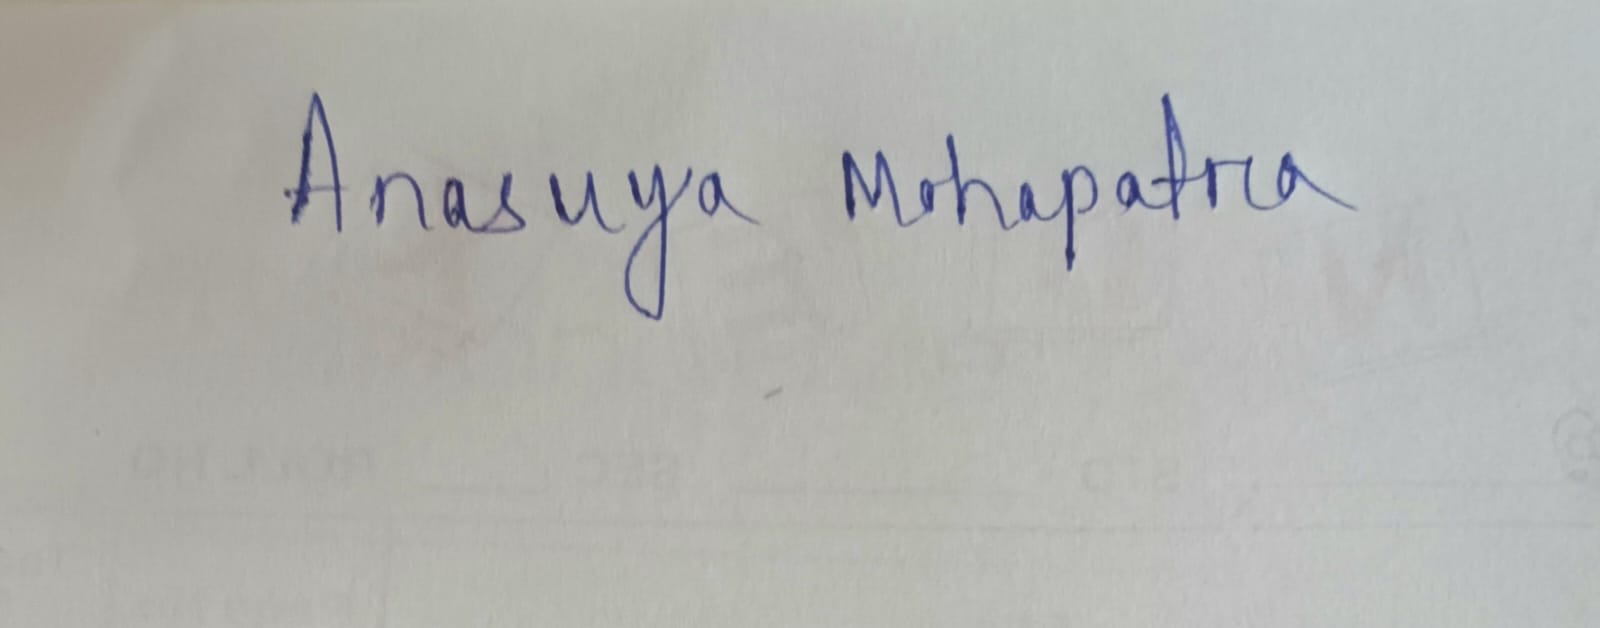 Anasuya Mohapatra